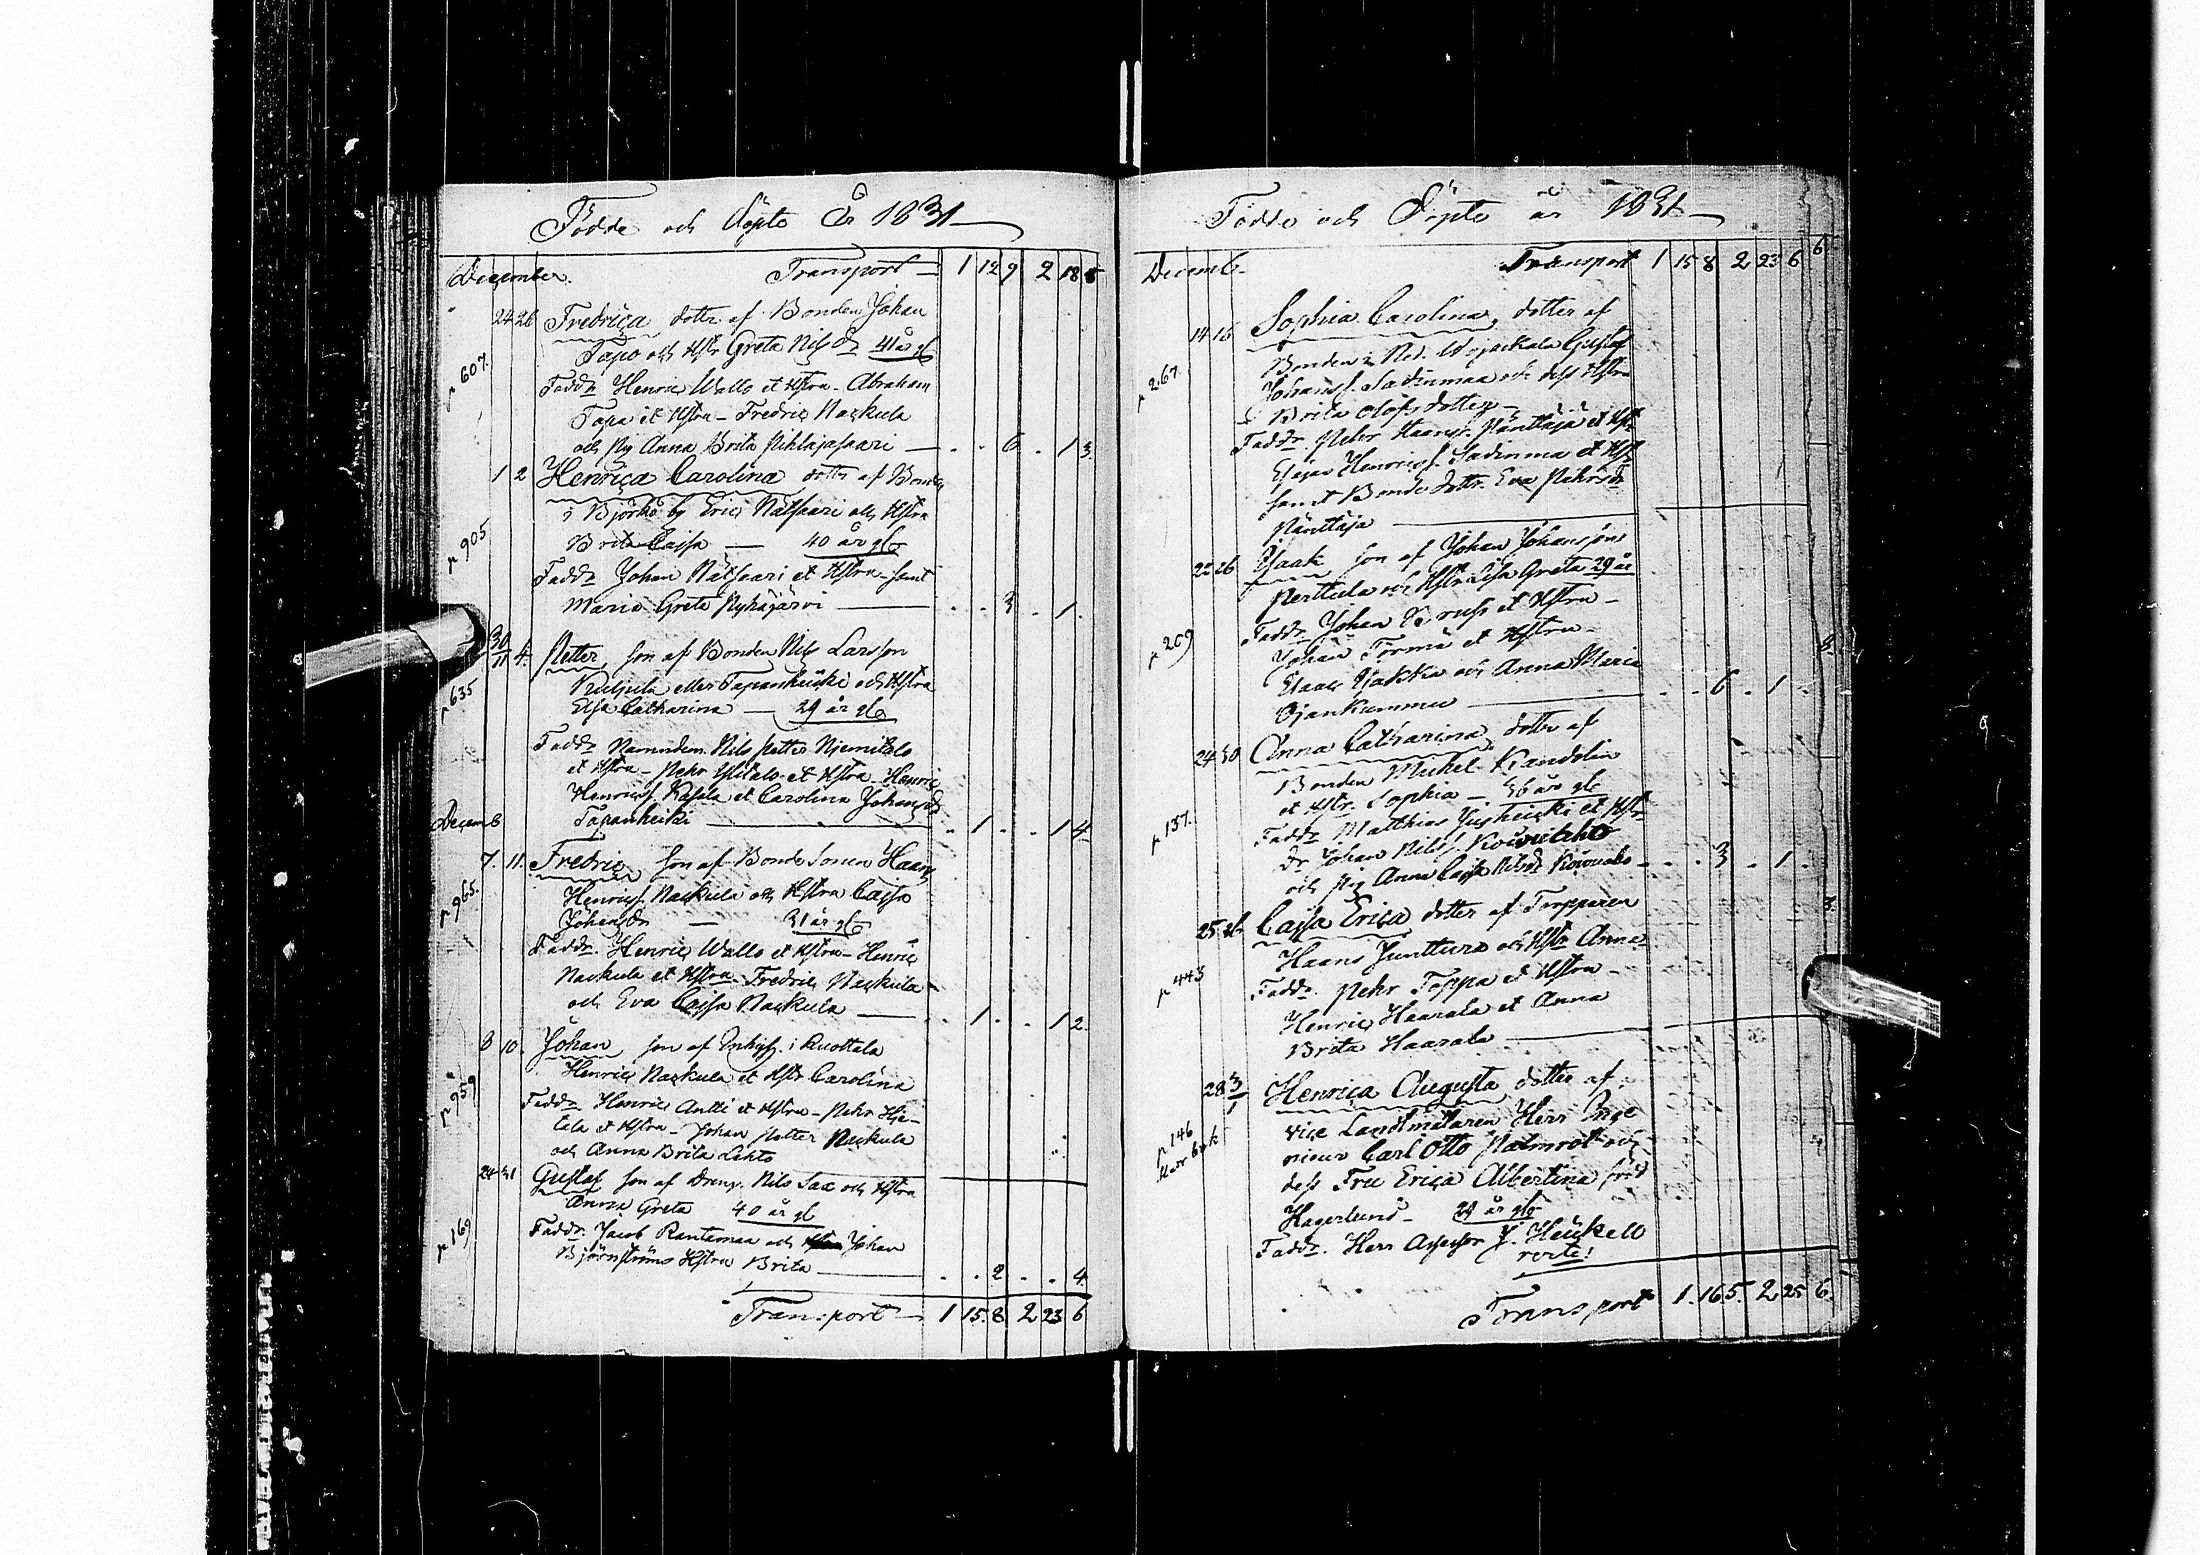 Födde och Döpte År 1831
December. Transport 1 12 9 2 18 5
24 26 Fredrica dotter af Bonden Johan
Tapo och Hstr Greta Nilsdr 41 år gl
p 607. Faddr Henric Wallo et Hstra - Abraham
Tapa et Hstra - Fredric Naskula
och Pig Anna Brita Pihlajasaari - . . 6 . 1 3.
1 2 Henrica Carolina dotter af Bonden
i Björkö by Eric Nätsaari och Hstra
p 905 Brita Cajsa - 40 år gl
Faddr Johan Nätsaari et Hstra samt
Maria Greta Pyhäjärvi - . . 3 . 1 .
30/11 4. Petter son af Bonden Nils Larsson
Kuljula eller Tapanheicki och Hstra
p 635 Elsa Catharina - 29 år gl
Faddr Nämndem. Nils Petter Njemitalo
et Hstra - Pehr Ylitalo et Hstra Henric
Henricss. Rasala et Carolina Johansdr
Decemb Tapanheicki - . 1 . . 1 4.
7. 11. Fredric son af Bonde Sonen Haans
Henricss. Naskula och Hstra Cajsa
p 965. Johansdr - 31 år gl
Faddr. Henric Wallo et Hstra - Henric
Naskula et Hstra - Fredric Naskula
och Eva Cajsa Naskula - . 1 . . 1 2.
8 10. Johan son af Inhys. i Ruottala
Henric Naskula et Hstr Carolina
p 959 Faddr Henric Antti et Hstra - Pehr Hie-
tala et Hstra - Johan Petter Naskula
och Anna Brita Lehto
24 31 Gustaf son af Dreng. Nils Sax och Hstra
Anna Greta 40 år gl
p 169 Faddr. Jacob Rantamaa och Johan
Björnströms Hstru Brita - . . 2 . . 4.
Transport - 1 15. 8 2 23 6
Födde och Döpte år 1831
Decemb. Transport 1 15 8 2 23 6
14 16 Sophia Carolina, dotter af
Bonden i Ned. Wojackala Gustaf
p 267. Johanss. Sadinmaa och dess Hstru
Brita Olofsdotter -
Faddr. Pehr Haanss. Pänttäjä et Hstr
Esajas Henricss. Sadinmaa et Hstr
samt Bonde dottr. Eva Pehrsdr
Pänttäja
22 26 Isaak son af Johan Johansson
Perttula och Hstr Lisa Greta 29 år
Faddr Johan Kruss et Hstra -
p 209 Johan Törmä et Hstru -
Claes Ojakka och Anna Maria
Ojankummu - . . 6 . 1 .
24 30 Anna Catharina, dotter af
Bonden Mickel Kandelin
et Hstr. Sophia - 36 år gl
p 137. Faddr Matthias Juşheicki et Hstr
Dr Johan Nilss. Koivulehto
och Pig Anna Cajsa Nilsdr Koivuaho - . . 3 . 1 .
25 26 Cajsa Erica dotter af Torpparen
Haans Junttura och Hstr Anna
p 443 Faddr. Pehr Toppa et Hstra -
Henric Haarala et Anna
Brita Haarala
28 3/1 Henrica Augusta dotter af
vice Landtmätaren Herr Inge
p 146 nieur Carl Otto Palmroth och
dess Fru Erica Albertina född
Hagerlund - 29 år gl
Faddr. Herr Assessor J. Heickell
verte!
Transport 1. 16 5. 2 25 6.